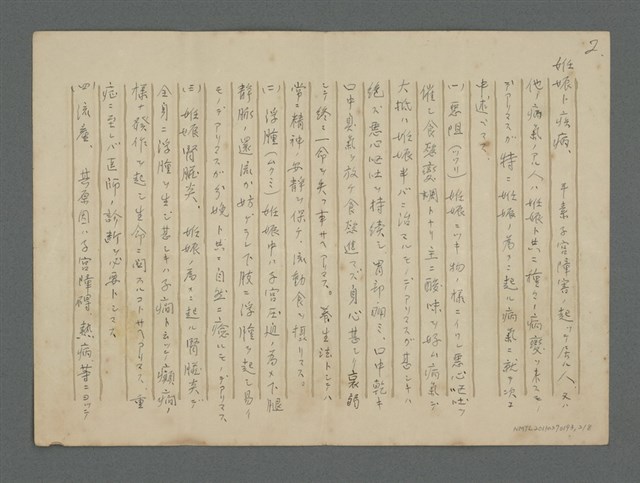 2.
妊娠ト疾病、 平素子宮障害ノ起ッテ居ル人、又ハ
他ノ病氣ノ人ハ妊娠ト共ニ種々ノ病変ヲ来スモノ
デアリマスガ 特ニ妊娠ノ為メニ起ル病氣ニ就テ次ニ
申述ベマス
(一)悪阻(ツワリ) 妊娠ニツキ物ノ様ニイワレ悪心嘔吐ヲ
催シ食慾変調トナリ主ニ酸味ヲ好ム病氣デ
大抵ハ妊娠半バニ治マルモノデアリマスガ甚シキハ
絶エズ悪心嘔吐ヲ持續シ胃部痛ミ、口中乾キ
口中臭氣ヲ放ケ食慾進マズ身心甚シク衰弱
シテ終ニ一命ヲ失フ事サヘアリマス。養生法トシテハ
常ニ精神ノ安静ヲ保チ、流動食ヲ摂リマス。
(二)浮腫(ムクミ) 妊娠中ハ子宮圧迫ノ為メ下腿
静脈ノ還流ガ妨ゲラレ下肢ニ浮腫ヲ起シ易イ
モノデアリマスガ分娩ト共ニ自然ニ癒ルモノデアリマス
(三)妊娠腎臓炎、 妊娠ノ為メニ起ル腎臓炎デ
全身ニ浮腫ヲ生ジ甚シキハ子癇ト云ッテ癲癇ノ
様ナ発作ヲ起シ生命ニ関スルコトサヘアリマス、重
症ニ至レバ医師ノ診断ヲ必要トシマス
(四)流産、 其原因ハ子宮障碍、熱病等ニヨッテ